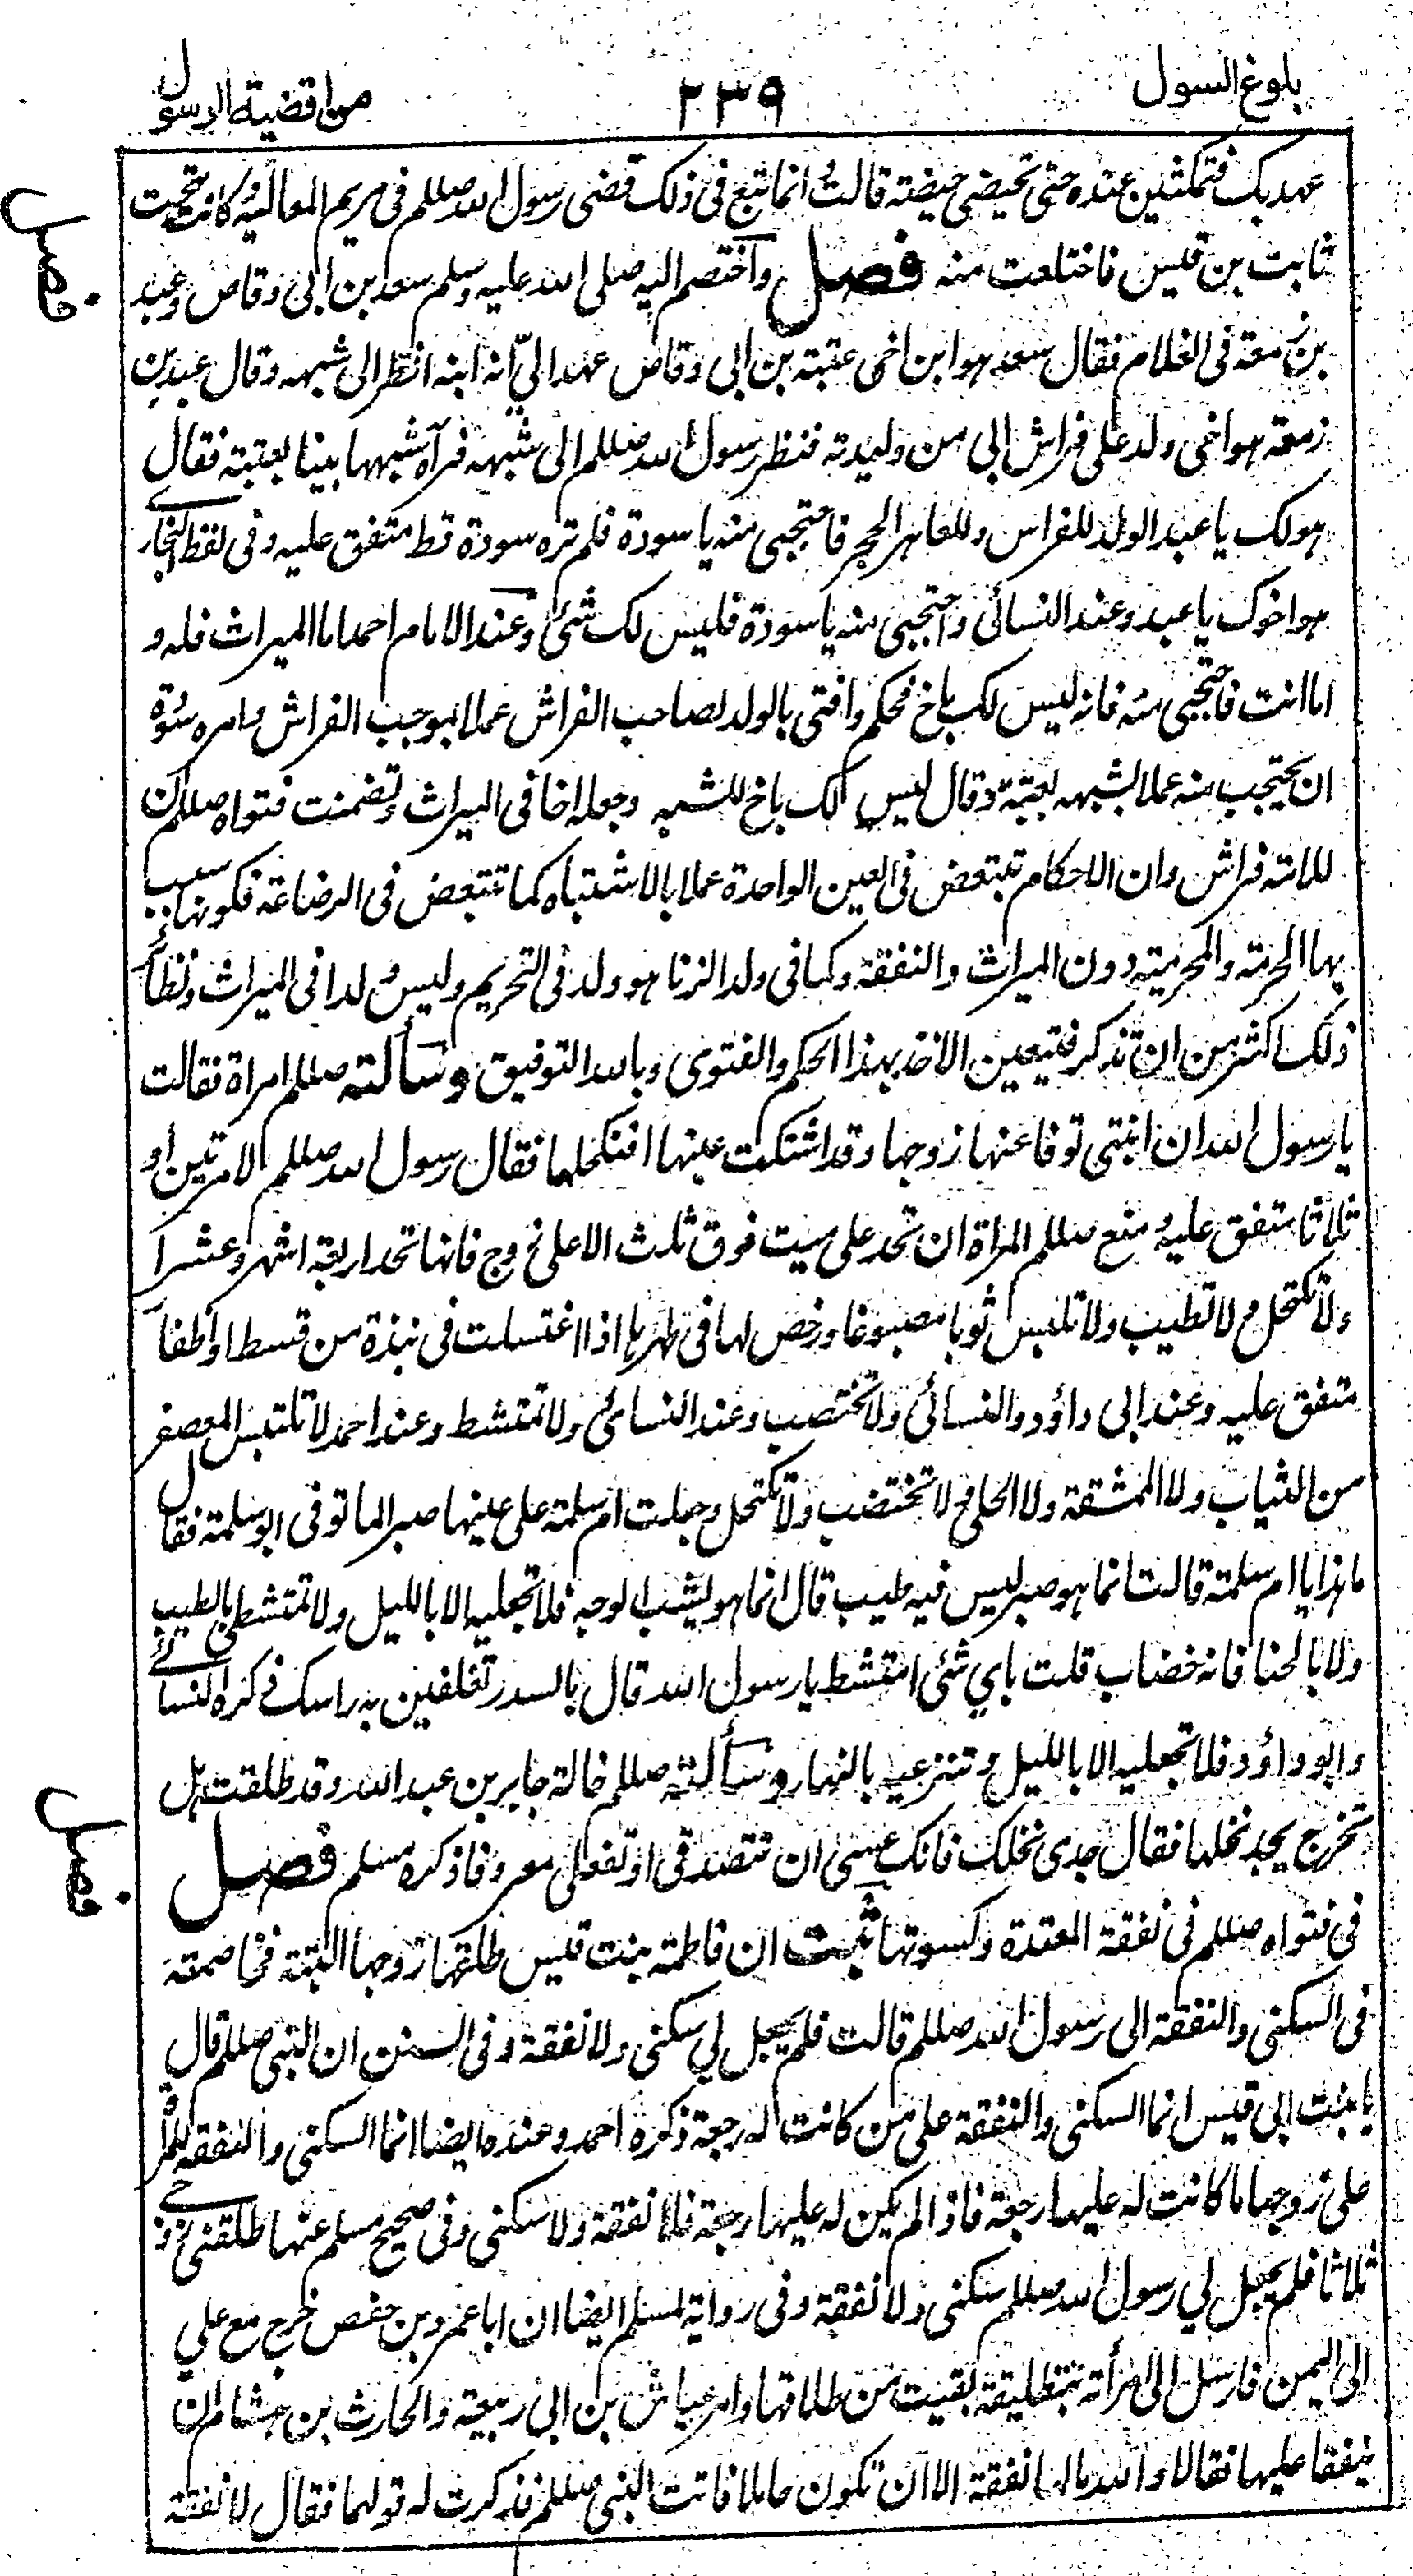 بلوغ السول
٢٣٩
من اقضية الرسول
عهد بك فتمكثين عنده حتى تحيضي حيضة قالت وانما تبع في ذلك قضى رسول الله صللم في مريم المغالية وكانت تحت
ثابت بن قيس فاختلعت منه فصل واختصم اليه صلى الله عليه وسلم سعد بن ابى وقاص وعبد
بن زمعة فى الغلام فقال سعد هو ابن اخى عتبة بن ابى وقاص عهد اليّ انه ابنه انظر الى شبهه وقال عبد بن
زمعة هو اخى ولد على فراش ابى من وليدته فنظر رسول الله صللم الى شبهه فرآه شبها بينا بعتبة فقال
هو لك يا عبد الولد للفراس وللعاهر الحجر فاحتجبى منه يا سودة فلم تره سودة قط متفق عليه وفى لفظ البخارى
هو اخوك يا عبد وعند النسائى واحتجبى منه يا سودة فليس لك شئ وعند الامام احمد اما الميراث فله و
اما انت فاحتجبى منه فانه ليس لك باخ فحكم وافتى بالولد لصاحب الفراش عملا بموجب الفراش وامره سودة
ان يحتجب منه عملا بشبهه بعتبة وقال ليس لك باخ للشبه وجعله اخا فى الميراث وتضمنت فتواه صللم ان
للامة فراش وان الاحكام تتبعض فى العين الواحدة عملا بالاشتباه كما تتبعض فى الرضاعة فكونها سبب
بها الحرمة والمحرمية دون الميراث والنفقة وكما فى ولد الزنا هو ولد فى التحريم وليس ولدا فى الميراث ونظائر
ذلك اكثر من ان تذكر فتيعين الاخذ بهذا الحكم والفتوى وبالله التوفيق وسألته صللم امراة فقالت
يا رسول الله ان ابنتى توفا عنها زوجها وقد اشتكت عينها افنكحلها فقال رسول الله صللم لا مرتين او
ثلاثا متفق عليه ومنع صللم المراة ان تحد على ميت فوق ثلث الا على زوج فانها تحد اربعة اشهر وعشرا
ولا تكتحل ولا تطيب ولا تلبس ثوبا مصبوغا ورخص لها فى طهرها اذا اغتسلت فى نبذة من قسط او اظفار
متفق عليه وعند ابى داؤد والنسائى ولا تختضب وعند النسائى ولا تمتشط وعند احمد لا تلتبس المعصفر
من الثياب ولا الممشقة ولا الحلى ولا تختضب ولا تكتحل وجعلت ام سلمة على عينها صبرا لما توفى ابو سلمة فقال
ما هذا يا ام سلمة قالت انما هو صبر ليس فيه طيب قال انما هو يشب الوجه فلا تجعليه الا بالليل ولا تمتشطى بالطيب
ولا بالحنا فانه خضاب قلت باي شئ امتشط يا رسول الله قال بالسدر تغلفين به راسك ذكره النسائى
وابو داؤد فلا تجعليه الا بالليل وتنزعيه بالنهار وسألته صللم خالة جابر بن عبد الله وقد طلقت هل
تخرج يجد نخلها فقال جدى نخلك فانك عسى ان تتصدقى او تفعلى معروفا ذكره مسلم فصل
فى فتواه صللم فى نفقة المعتدة وكسوتها ثبت ان فاطمة بنت قيس طلقها زوجها البتة فخاصمته
فى السكنى والنفقة الى رسول الله صللم قالت فلم يجعل لي سكنى ولا نفقة وفى السنن ان النبى صللم قال
يا بنت ابى قيس انما السكنى والنفقة على من كانت له رجعة ذكره احمد وعنده ايضا انما السكنى والنفقة للمرأة
على زوجها ما كانت له عليها رجعة فاذا لم يكن له عليها رجعة فلا نفقة ولا سكنى وفى صحيح مسلم عنها طلقنى زوجى
ثلاثا فلم يجعل لي رسول الله صللم سكنى ولا نفقة وفى رواية لمسلم ايضا ان ابا عمرو بن حفص خرج مع علي
الى اليمن فارسل الى امرأته بتطليقة بقيت من طلاقها وامر عياش بن ابى ربيعة والحارث بن هشام ان
ينفقا عليها فقالا والله ما لها نفقة الا ان تكون حاملا فاتت النبى صللم فذكرت له قولهما فقال لا نفقة
فصل
فصل